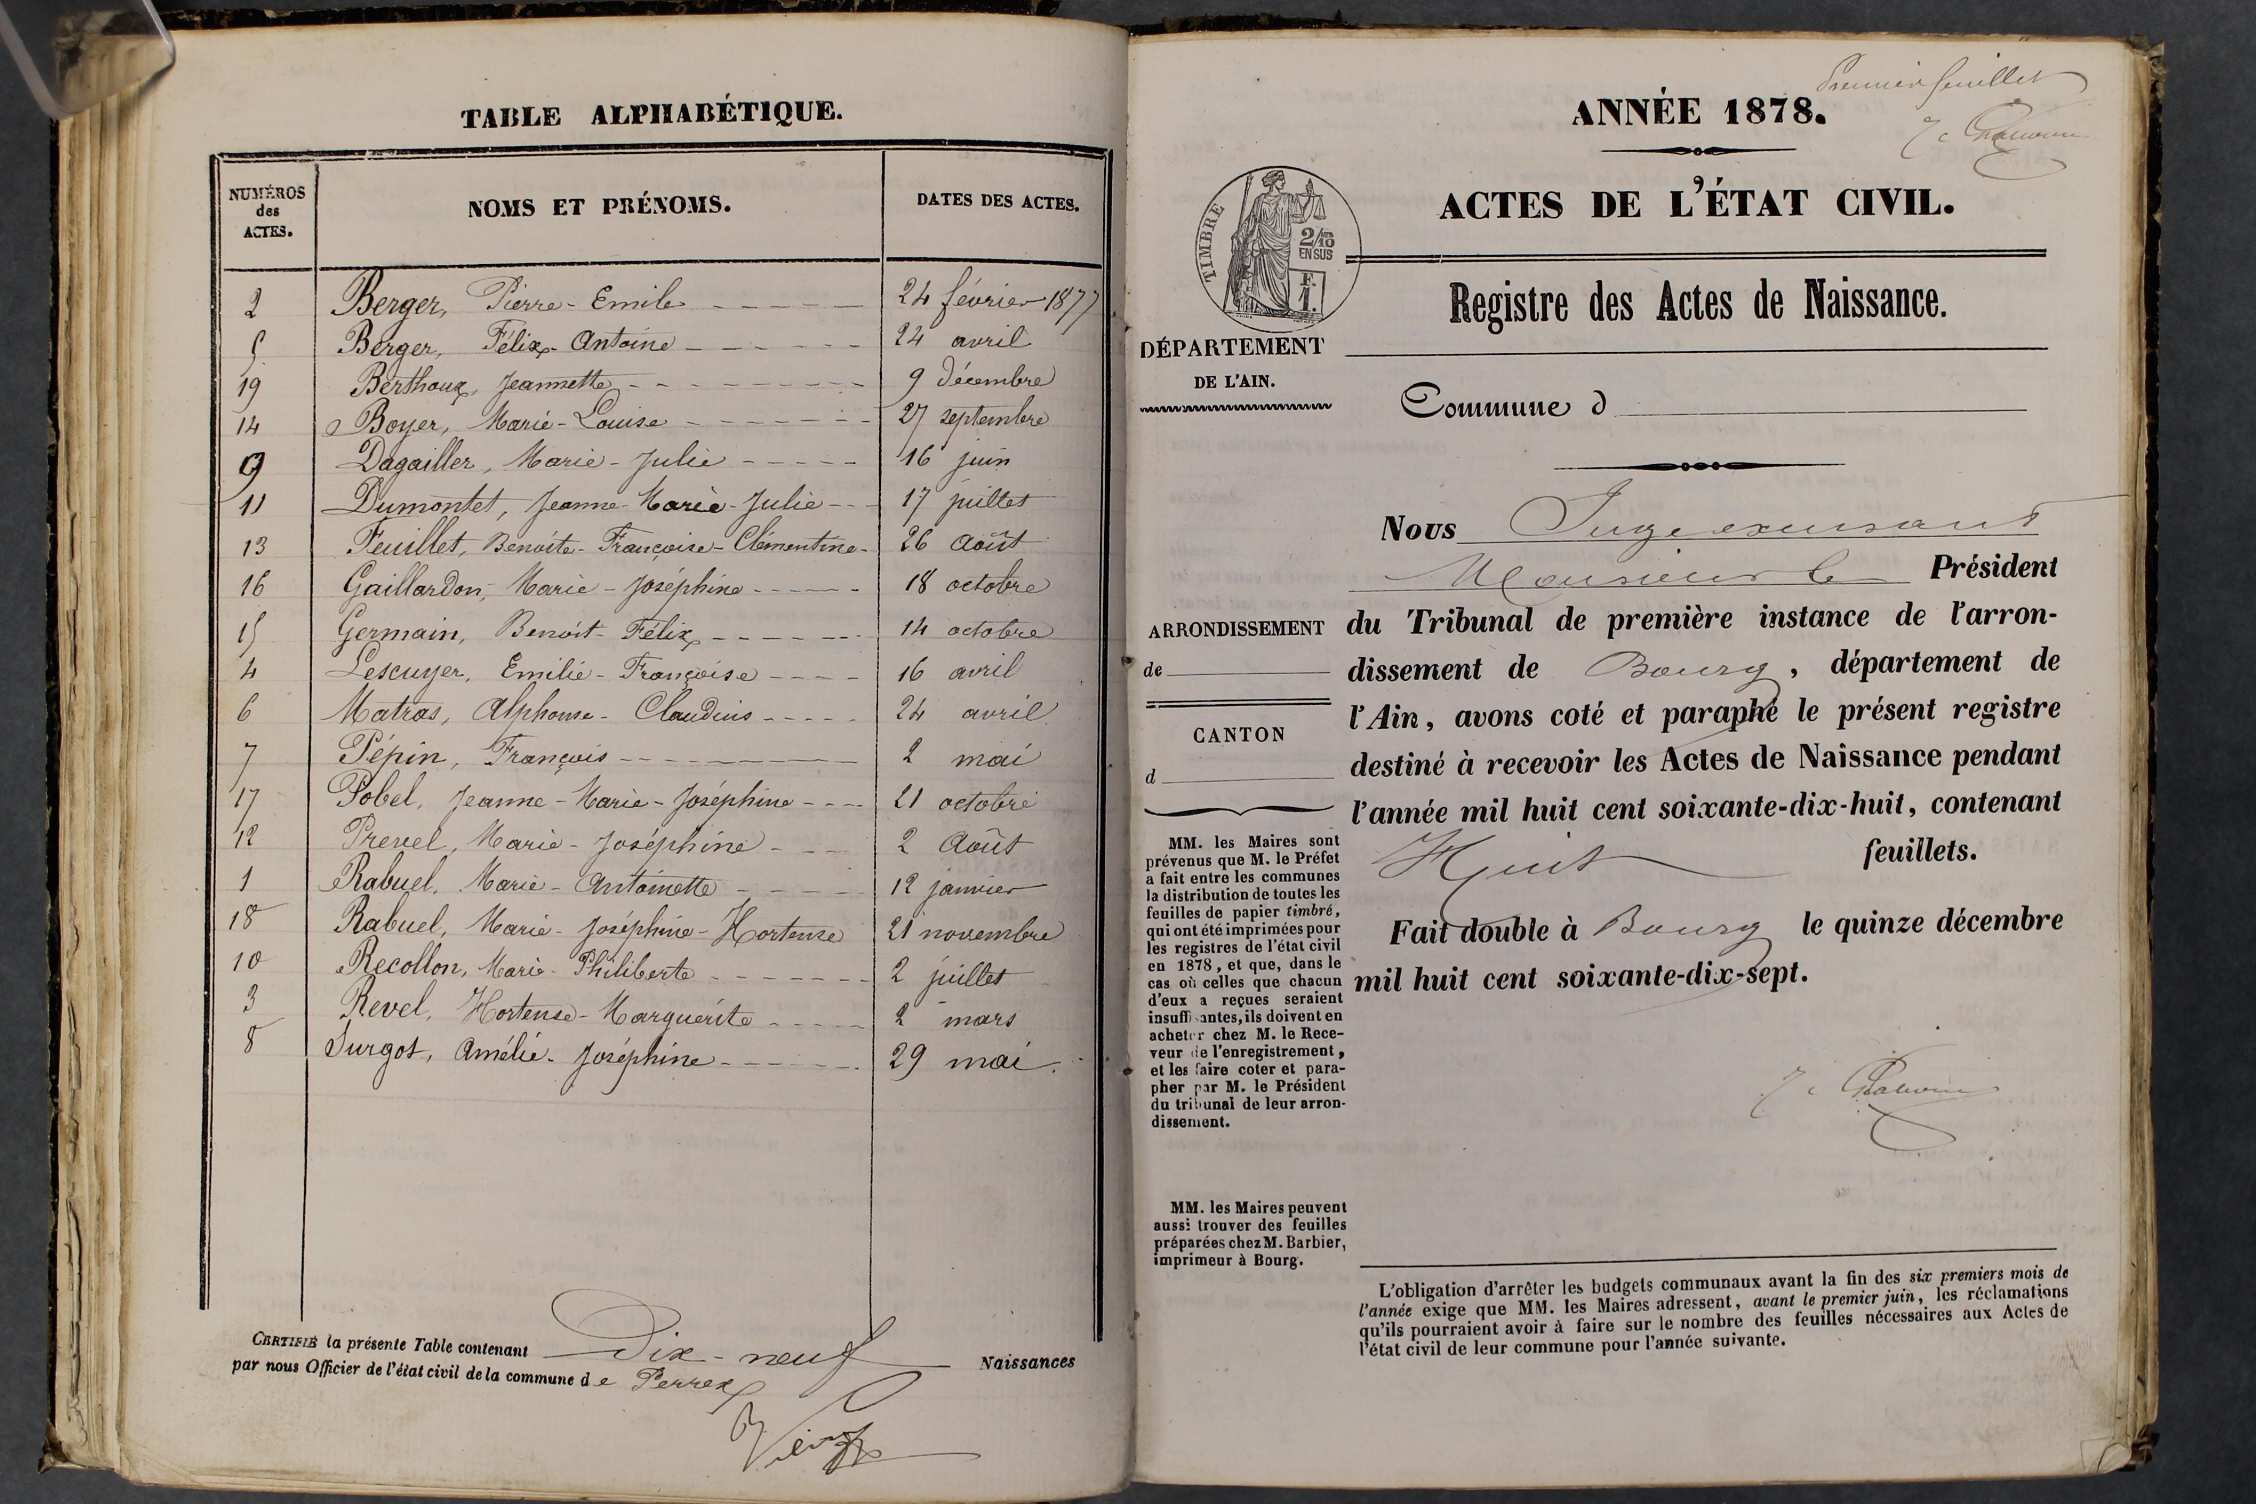 TABLE ALPHABÉTIQUE.
NUMÉROS des ACTES. NOMS ET PRÉNOMS. DATES DES ACTES.
2 Berger, Pierre-Emile 24 février 1877
5 Berger, Félix-Antoine 24 avril
19 Berthoux, Jeannette 9 décembre
14 Boyer, Marie-Louise 27 septembre
9 Dagailler, Marie-Julie 16 juin
11 Dumontet, Jeanne-Marie-Julie 17 juillet
13 Feuillet, Benoite-Françoise-Clémentine 26 Août
16 Gaillardon, Marie-Joséphine 18 octobre
15 Germain, Benoit-Félix 14 octobre
4 Lescuyer, Emilie-Françoise 16 avril
6 Matras, Alphonse-Claudius 24 avril
7 Pépin, François 2 mai
17 Pobel, Jeanne-Marie-Joséphine 21 octobre
12 Prevel, Marie-Joséphine 2 Août
1 Rabuel, Marie-Antoinette 12 janvier
18 Rabuel, Marie-Joséphine-Hortense 21 novembre
10 Recollon, Marie-Philiberte 2 juillet
3 Revel, Hortense-Marguerite 2 mars
8 Surgot, Amélie-Joséphine 29 mai.
CERTIFIÉ la présente Table contenant Dix-neuf Naissances
par nous Officier de l'état civil de la commune de Perrex
Premier feuillet
ANNÉE 1878.
ACTES DE L'ÉTAT CIVIL.
TIMBRE
2/10
EN SUS
F.
1.
Registre des Actes de Naissance.
DÉPARTEMENT
DE L'AIN.
Commune d
Nous Juge
Monsieur le Président
du Tribunal de première instance de l'arron-
dissement de Bourg, département de
l'Ain, avons coté et paraphé le présent registre
destiné à recevoir les Actes de Naissance pendant
l'année mil huit cent soixante-dix-huit, contenant
Huit feuillets.
Fait double à Bourg le quinze décembre
mil huit cent soixante-dix-sept.
ARRONDISSEMENT
de
CANTON
d
MM. les Maires sont
prévenus que M. le Préfet
a fait entre les communes
la distribution de toutes les
feuilles de papier timbré,
qui ont été imprimées pour
les registres de l'état civil
en 1878, et que, dans le
cas où celles que chacun
d'eux a reçues seraient
insuffisantes, ils doivent en
acheter chez M. le Rece-
veur de l'enregistrement,
et les faire coter et para-
pher par M. le Président
du tribunal de leur arron-
dissement.
MM. les Maires peuvent
aussi trouver des feuilles
préparées chez M. Barbier,
imprimeur à Bourg.
L'obligation d'arrêter les budgets communaux avant la fin des six premiers mois de
l'année exige que MM. les Maires adressent, avant le premier juin, les réclamations
qu'ils pourraient avoir à faire sur le nombre des feuilles nécessaires aux Actes de
l'état civil de leur commune pour l'année suivante.